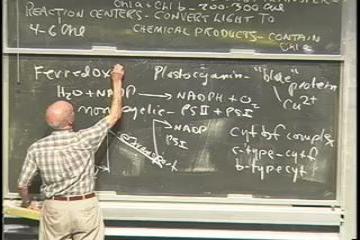 Chl a + Chl b - 200-300 Chl
REACTION CENTERS - CONVERT LIGHT TO
4-6 Chl
CHEMICAL PRODUCTS - CONTAIN
Chl a
Ferredox
Plastocyanin - "blue" protein
Cu2+
H2O + NADP → NADPH + O2
noncyclic - PSII + PSI
NADP
PSI
Cyt bf complex
c-type - cyt f
b-type cyt